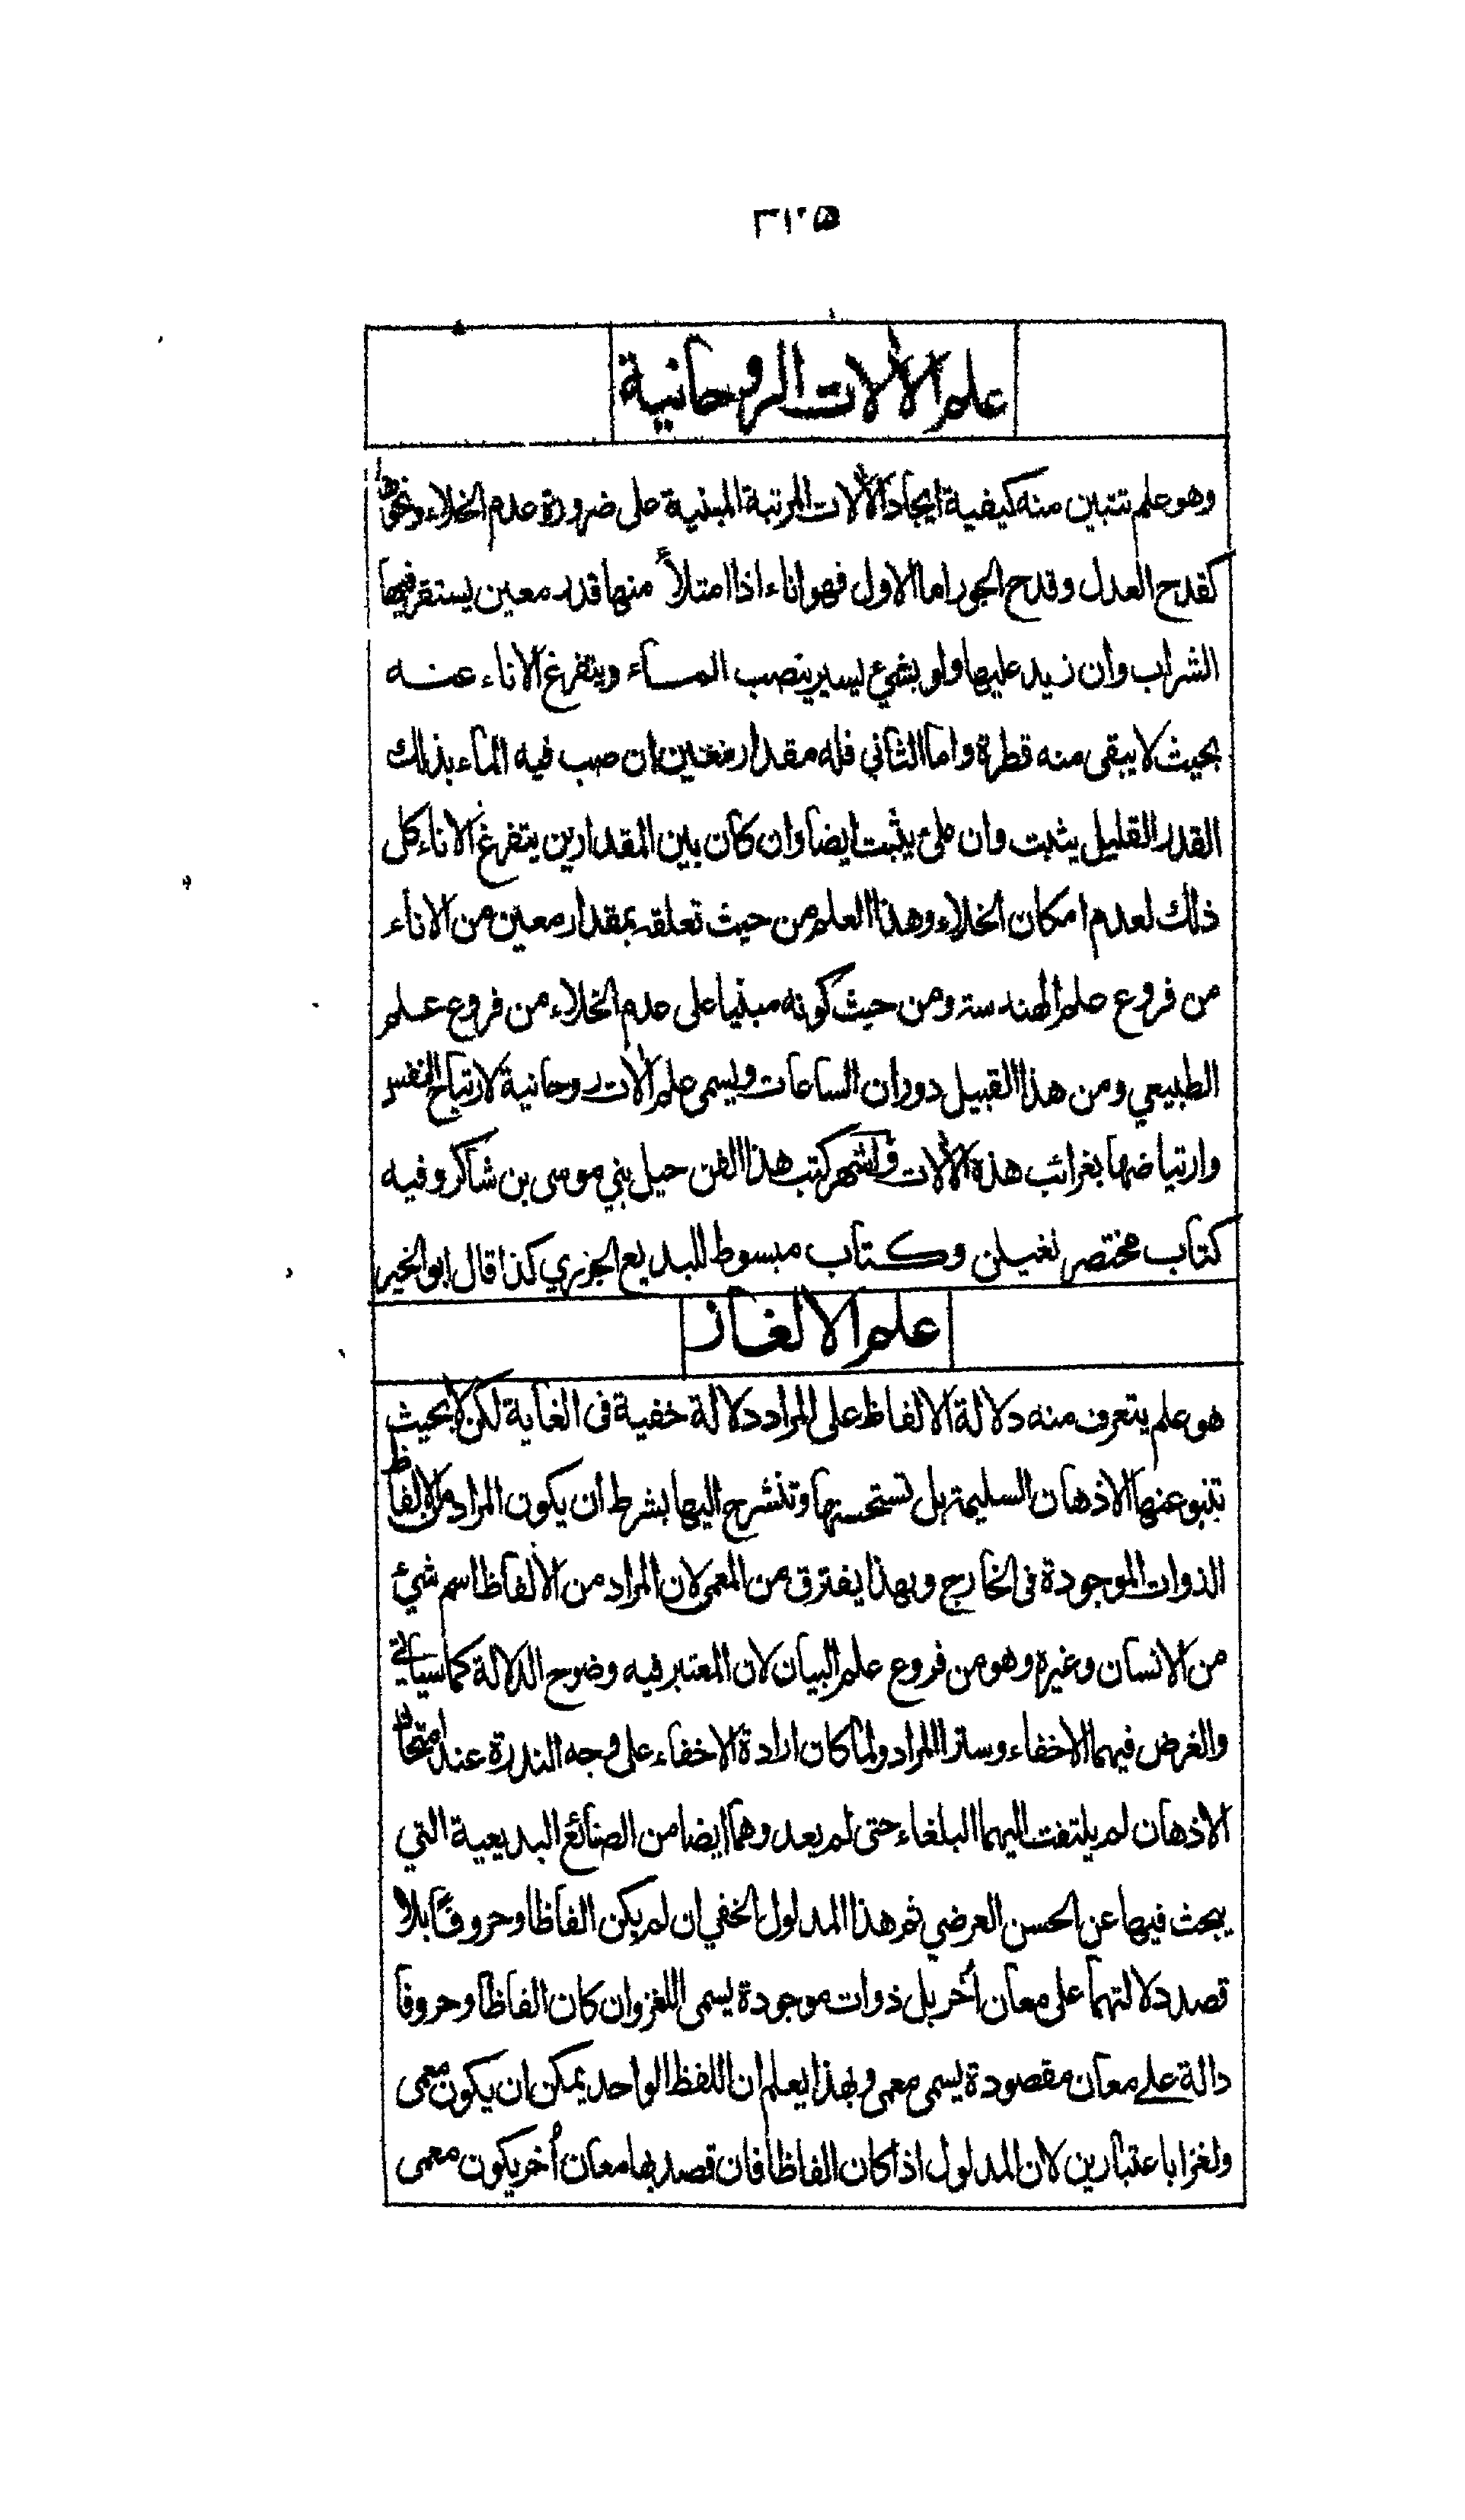 علم الألات الروحانية
وهو علم تتبين منه كيفية ايجاد الألات المرتبة المبنية على ضرورة عدم الخلاء ونحوها
كقدح العدل وقدح الجور اما الاول فهو اناء اذا امتلأ منها قدر معين يستقر فيها
الشراب وان زيد عليها ولو بشيء يسير ينصب المـاء ويتفرغ الاناء عنـه
بحيث لا يبقى منه قطرة واما الثاني فله مقدار معين ان صب فيه الماء بذلك
القدر القليل يثبت وان ملئ يثبت ايضا وان كان بين المقدارين يتفرغ الاناء كل
ذلك لعدم امكان الخلاء وهذا العلم من حيث تعلقه بمقدار معين من الاناء
من فروع علم الهندسة ومن حيث كونه مبنيا على عدم الخلاء من فروع علم
الطبيعي ومن هذا القبيل دوران الساعات ويسمى علم ألات روحانية لارتياح النفس
وارتياضها بغرائب هذه الألات واشهر كتب هذا الفن حيل بني موسى بن شاكر وفيه
كتاب مختصر لغيلن وكتاب مبسوط للبديع الجزري كذا قال ابو الخير
علم الالغاز
هو علم يتعرف منه دلالة الالفاظ على المراد دلالة خفية في الغاية لكن لا بحيث
تنبو عنها الاذهان السليمة بل تستحسنها وتنشرح اليها بشرط أن يكون المراد من الالفاظ
الذوات الموجودة في الخارج وبهذا يفترق من المعمى لان المراد من الألفاظ اسم شيء
من الانسان وغيره وهو من فروع علم البيان لان المعتبر فيه وضوح الدلالة كما سيأتي
والغرض فيهما الاخفاء وستر المراد ولما كان ارادة الاخفاء على وجه الندرة عند امتحان
الاذهان لم يلتفت اليهما البلغاء حتى لم يعد وهما ايضا من الصنائع البديعية التي
يبحث فيها عن الحسن العرضي ثم هذا المدلول الخفي ان لم يكن الفاظا وحروفًا بلا
قصد دلالتهما على معان أخر بل ذوات موجودة يسمى اللغز وان كان الفاظا وحروفا
دالة على معان مقصودة يسمى معمى وبهذا يعلم ان اللفظ الواحد يمكن ان يكون معمى
ولغزا باعتبارين لان المدلول اذا كان الفاظا فان قصد بها معان أخر يكون معمى